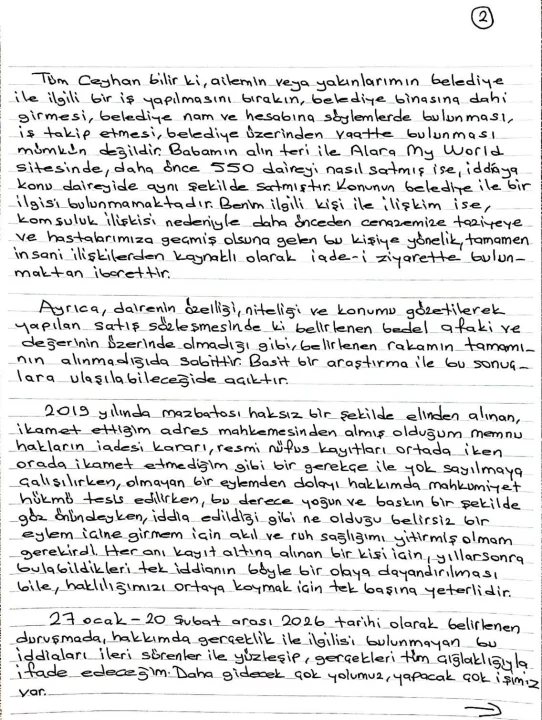 2
Tüm Ceyhan bilir ki, ailemin veya yakınlarımın belediye
ile ilgili bir iş yapılmasını bırakın, belediye binasına dahi
girmesi, belediye nam ve hesabına söylemlerde bulunması,
iş takip etmesi, belediye üzerinden vaatte bulunması
mümkün değildir. Babamın alın teri ile Alara My World
sitesinde, daha önce 550 daireyi nasıl satmış ise, iddiaya
konu daireyide aynı şekilde satmıştır. Konunun belediye ile bir
ilgisi bulunmamaktadır. Benim ilgili kişi ile ilişkim ise,
komşuluk ilişkisi nedeniyle daha önceden cenazemize taziyeye
ve hastalarımıza geçmiş olsuna gelen bu kişiye yönelik, tamamen
insani ilişkilerden kaynaklı olarak iade-i ziyarette bulun-
maktan ibarettir.
Ayrıca, dairenin özelliği, niteliği ve konumu gözetilerek
yapılan satış sözleşmesinde ki belirlenen bedel afaki ve
değerinin üzerinde olmadığı gibi, belirlenen rakamın tamamı-
nın alınmadığıda sabittir. Basit bir araştırma ile bu sonuç-
lara ulaşılabileceğide açıktır.
2019 yılında mazbatası haksız bir şekilde elinden alınan,
ikamet ettiğim adres mahkemesinden almış olduğum memnu
hakların iadesi kararı, resmi nüfus kayıtları ortada iken
orada ikamet etmediğim gibi bir gerekçe ile yok sayılmaya
çalışılırken, olmayan bir eylemden dolayı hakkımda mahkumiyet
hükmü tesis edilirken, bu derece yoğun ve baskın bir şekilde
göz önündeyken, iddia edildiği gibi ne olduğu belirsiz bir
eylem içine girmem için akıl ve ruh sağlığımı yitirmiş olmam
gerekirdi. Her anı kayıt altına alınan bir kişi için, yıllarsonra
bulabildikleri tek iddianın böyle bir olaya dayandırılması
bile, haklılığımızı ortaya koymak için tek başına yeterlidir.
27 ocak - 20 Şubat arası 2026 tarihi olarak belirlenen
duruşmada, hakkımda gerçeklik ile ilgilisi bulunmayan bu
iddiaları ileri sürenler ile yüzleşip, gerçekleri tüm çığlaklığıyla
ifade edeceğim. Daha gidecek çok yolumuz, yapacak çok işimiz
var.